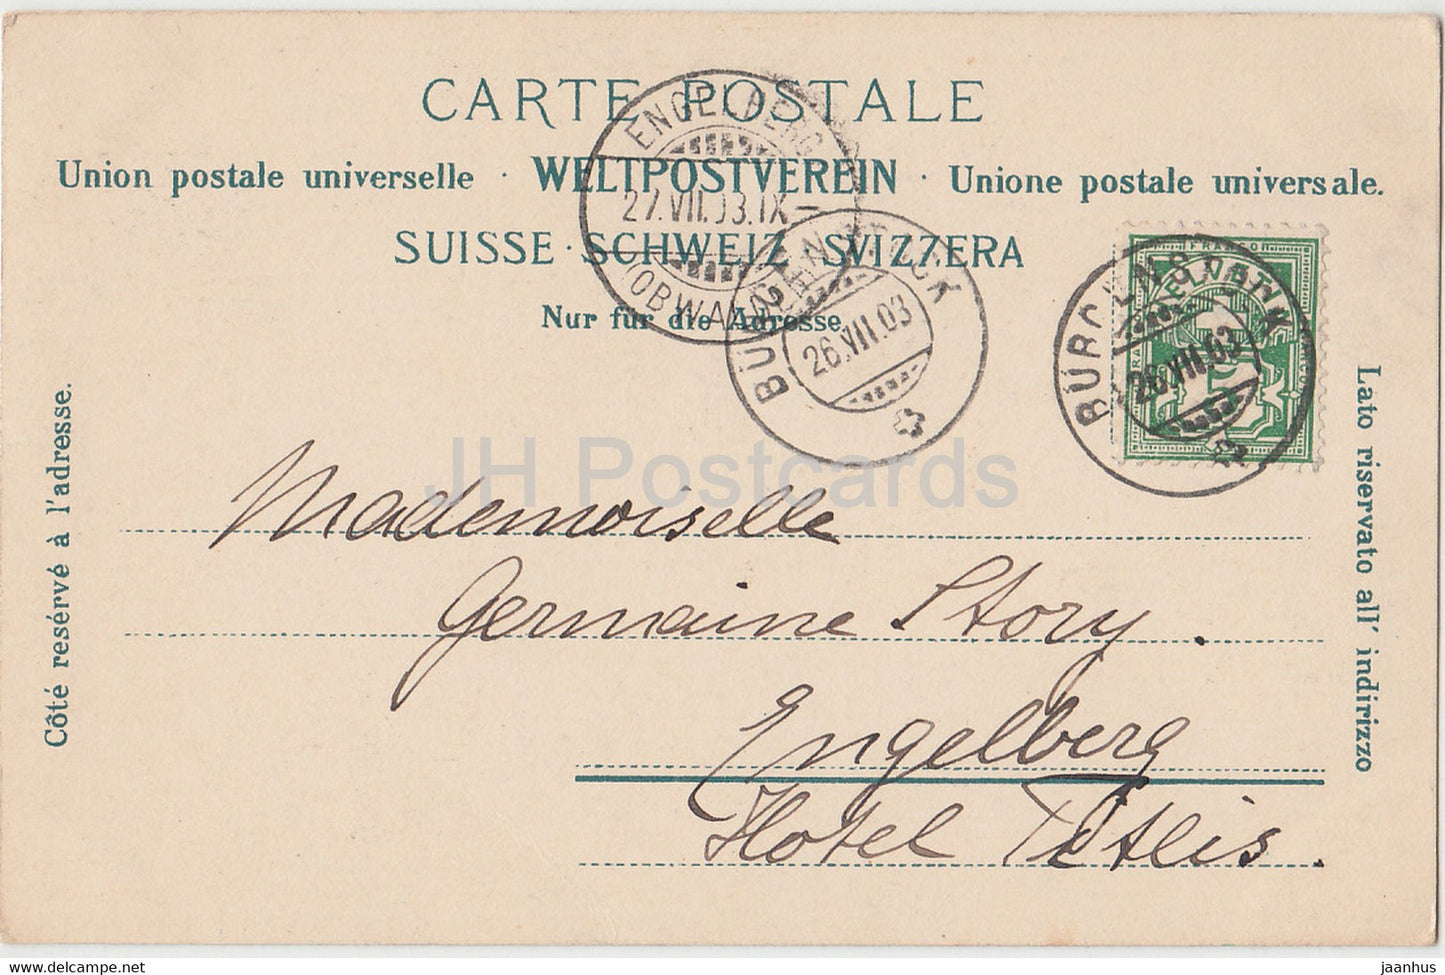 CARTE POSTALE
Union postale universelle · WELTPOSTVEREIN · Unione postale universale.
SUISSE · SCHWEIZ SVIZZERA
Nur für die Adresse
ENGELBERG
27.VII.03.IX–
(OBWALDEN)
BÜRGENSTOCK
26.VII.03
BÜRGENSTOCK
26.VII.03
FRANCO
HELVETIA
Côté resérvé à l'adresse.
Lato riservato all' indirizzo
JH Postcards
Mademoiselle
Germaine Story.
Engelberg
Hotel Titlis.
delcampe.net
jaanhus